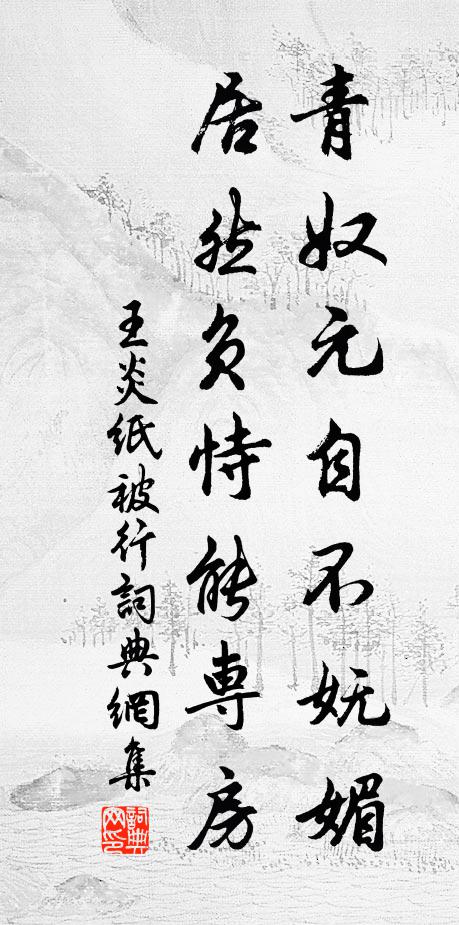 青奴元自不妩媚
居然负恃能専房
王炎纸被行詞典網集
詞典网印